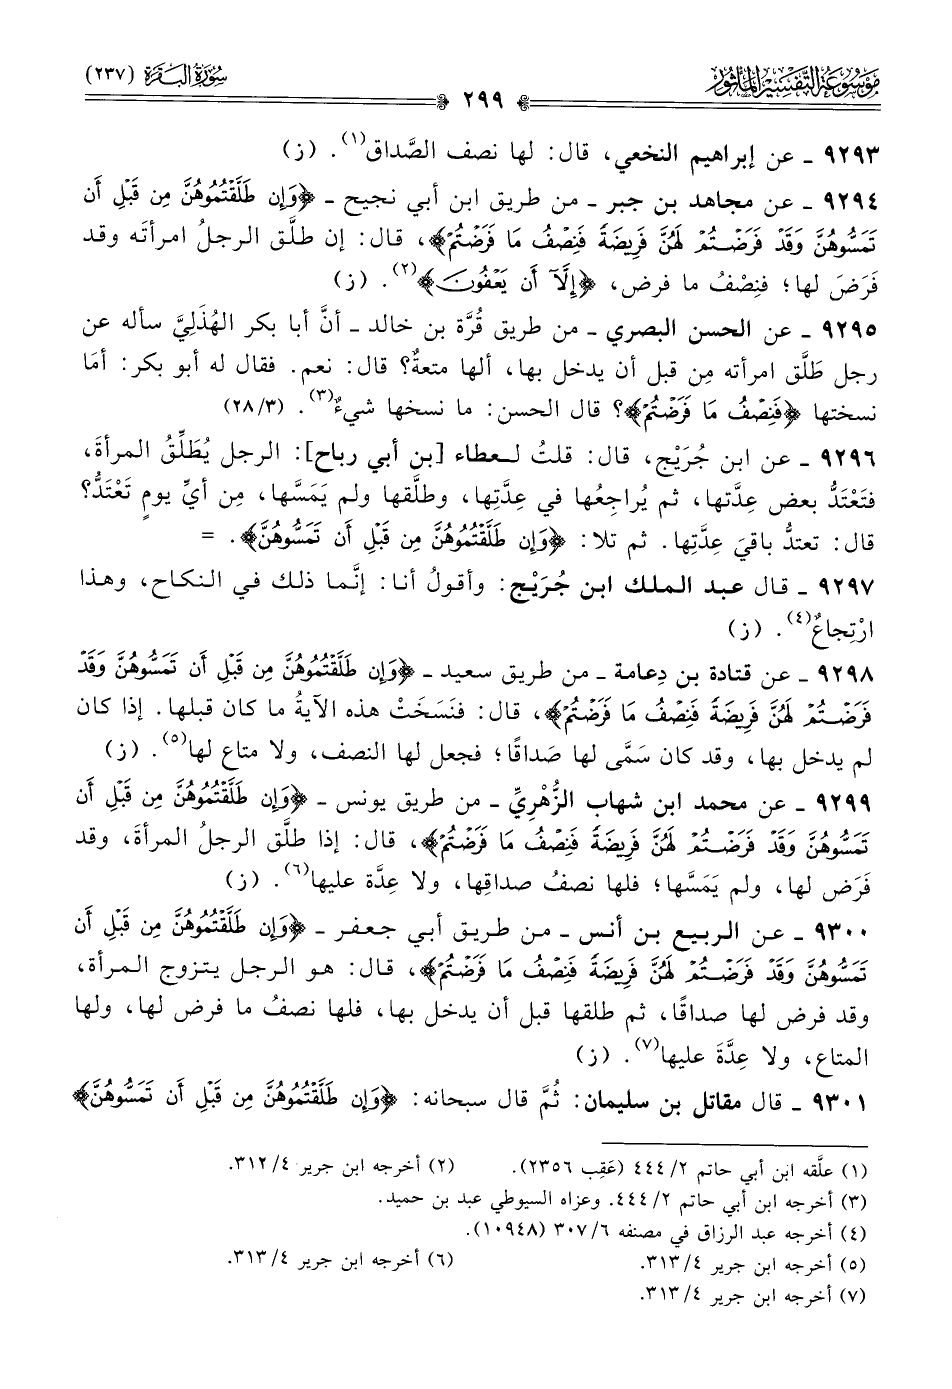 مَوْسُوعَة التَّفْسِيْرِ المَأْثُور
سُورَةُ البَقَرَة (٢٣٧)
٢٩٩
٩٢٩٣ ـ عن إبراهيم النخعي، قال: لها نصف الصَّداق(١). (ز)
٩٢٩٤ ـ عن مجاهد بن جبر ـ من طريق ابن أبي نجيح ـ ﴿وَإِن طَلَّقْتُمُوهُنَّ مِن قَبْلِ أَن
تَمَسُّوهُنَّ وَقَدْ فَرَضْتُمْ لَهُنَّ فَرِيضَةً فَنِصْفُ مَا فَرَضْتُمْ﴾، قال: إن طلَّق الرجلُ امرأتَه وقد
فَرَضَ لها؛ فنِصْفُ ما فرض، ﴿إِلَّا أَن يَعْفُونَ﴾(٢). (ز)
٩٢٩٥ ـ عن الحسن البصري ـ من طريق قُرَّة بن خالد ـ أنَّ أبا بكر الهُذَلِيَّ سأله عن
رجل طَلَّق امرأته مِن قبل أن يدخل بها، ألها متعةٌ؟ قال: نعم. فقال له أبو بكر: أمَا
نسختها ﴿فَنِصْفُ مَا فَرَضْتُمْ﴾؟ قال الحسن: ما نسخها شيءٌ(٣). (٢٨/٣)
٩٢٩٦ ـ عن ابن جُرَيْج، قال: قلتُ لـعطاء [بن أبي رباح]: الرجل يُطَلِّقُ المرأةَ،
فتَعْتَدُّ بعض عِدَّتها، ثم يُراجِعُها في عِدَّتِها، وطلَّقها ولم يَمَسَّها، مِن أيِّ يومٍ تَعْتَدُّ؟
قال: تعتدُّ باقيَ عِدَّتِها. ثم تلا: ﴿وَإِن طَلَّقْتُمُوهُنَّ مِن قَبْلِ أَن تَمَسُّوهُنَّ﴾. =
٩٢٩٧ ـ قال عبد الملك ابن جُرَيْج: وأقولُ أنا: إنَّما ذلك في النكاح، وهذا
ارْتِجاعٌ(٤). (ز)
٩٢٩٨ ـ عن قتادة بن دِعامة ـ من طريق سعيد ـ ﴿وَإِن طَلَّقْتُمُوهُنَّ مِن قَبْلِ أَن تَمَسُّوهُنَّ وَقَدْ
فَرَضْتُمْ لَهُنَّ فَرِيضَةً فَنِصْفُ مَا فَرَضْتُمْ﴾، قال: فنَسَخَتْ هذه الآيةُ ما كان قبلها. إذا كان
لم يدخل بها، وقد كان سَمَّى لها صَداقًا؛ فجعل لها النصف، ولا متاع لها(٥). (ز)
٩٢٩٩ ـ عن محمد ابن شهاب الزُّهْرِيِّ ـ من طريق يونس ـ ﴿وَإِن طَلَّقْتُمُوهُنَّ مِن قَبْلِ أَن
تَمَسُّوهُنَّ وَقَدْ فَرَضْتُمْ لَهُنَّ فَرِيضَةً فَنِصْفُ مَا فَرَضْتُمْ﴾، قال: إذا طلَّق الرجلُ المرأةَ، وقد
فَرَض لها، ولم يَمَسَّها؛ فلها نصفُ صداقِها، ولا عِدَّة عليها(٦). (ز)
٩٣٠٠ ـ عن الربيع بن أنس ـ من طريق أبي جعفر ـ ﴿وَإِن طَلَّقْتُمُوهُنَّ مِن قَبْلِ أَن
تَمَسُّوهُنَّ وَقَدْ فَرَضْتُمْ لَهُنَّ فَرِيضَةً فَنِصْفُ مَا فَرَضْتُمْ﴾، قال: هو الرجل يتزوج المرأة،
وقد فرض لها صداقًا، ثم طلقها قبل أن يدخل بها، فلها نصفُ ما فرض لها، ولها
المتاع، ولا عِدَّةَ عليها(٧). (ز)
٩٣٠١ ـ قال مقاتل بن سليمان: ثُمَّ قال سبحانه: ﴿وَإِن طَلَّقْتُمُوهُنَّ مِن قَبْلِ أَن تَمَسُّوهُنَّ﴾
(١) علَّقه ابن أبي حاتم ٢/ ٤٤٤ (عَقِب ٢٣٥٦). (٢) أخرجه ابن جرير ٤/ ٣١٢.
(٣) أخرجه ابن أبي حاتم ٢/ ٤٤٤. وعزاه السيوطي عبد بن حميد.
(٤) أخرجه عبد الرزاق في مصنفه ٦/ ٣٠٧ (١٠٩٤٨).
(٥) أخرجه ابن جرير ٤/ ٣١٣. (٦) أخرجه ابن جرير ٤/ ٣١٣.
(٧) أخرجه ابن جرير ٤/ ٣١٣.